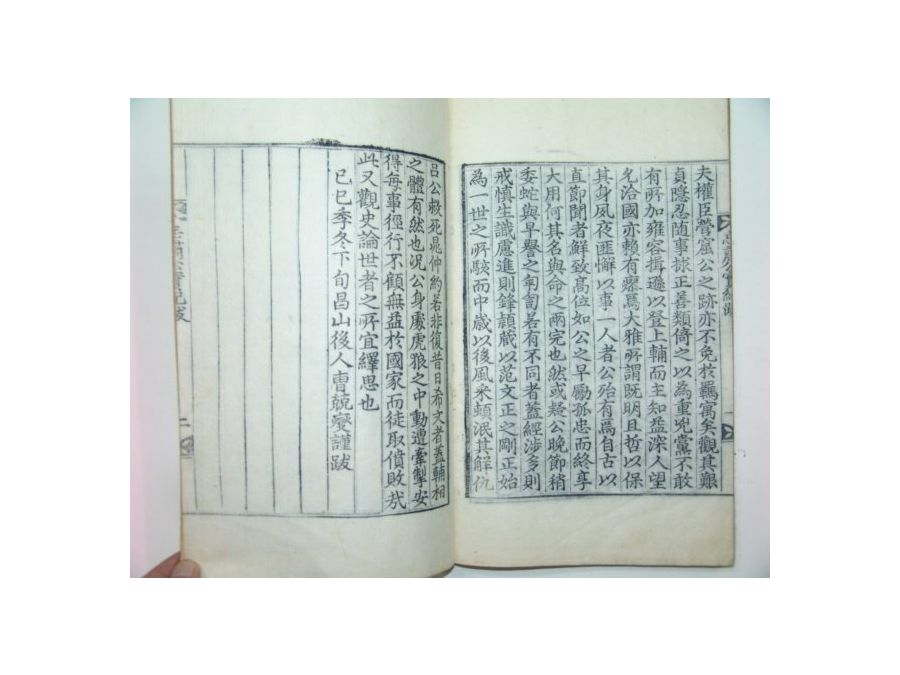 夫權臣營窟公之跡亦不免於羈寓矣觀其艱
貞隱忍随事捄正善類倚之以為重兇黨不敢
有所加雍容揖遜以登上輔而主知益深人望
允洽國亦賴有瘳焉大雅所謂既明且哲以保
其身夙夜匪懈以事一人者公殆有焉自古以
直節聞者鮮致髙位如公之早勵孤忠而終享
大用何其名與命之兩完也然或疑公晚節稍
委蛇與早譽之匉訇若有不同者蓋經涉多則
戒慎生識慮進則鋒頴蔵以范文正之剛正始
為一世之所駭而中歳以後風采頓泯其解仇
吕公救死晁仲約若非復昔日希文者蓋輔相
之體有然也况公身處虎狼之中動遭牽掣安
得每事徑行不顧無益於國家而徒取僨敗㢤
此又觀史論世者之所宜繹思也
己巳季冬下旬昌山後人曺兢燮謹跋
二